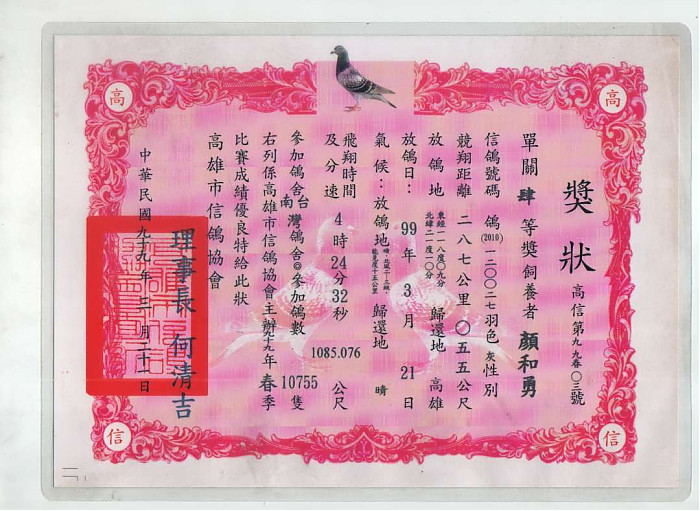 高
高
獎狀
高信第九九春〇三號
單關肆等獎飼養者 顏和勇
信鴿號碼 鴿(2010)一二〇〇二七羽色灰性別
競翔距離 二八七公里〇五五公尺
放鴿地 東經一一八度〇九分 北緯二一度一〇分 歸還地 高雄
放鴿日：99年3月21日
氣候：放鴿地 歸還地 晴
飛翔時間 4時24分32秒
及分速 1085.076 公尺
參加鴿舍南台灣鴿舍◎參加鴿數10755隻
右列係高雄市信鴿協會主辦九十九年春季
比賽成績優良特給此狀
高雄市信鴿協會
理事長 何清吉
中華民國九十九年三月二十一日
信
信